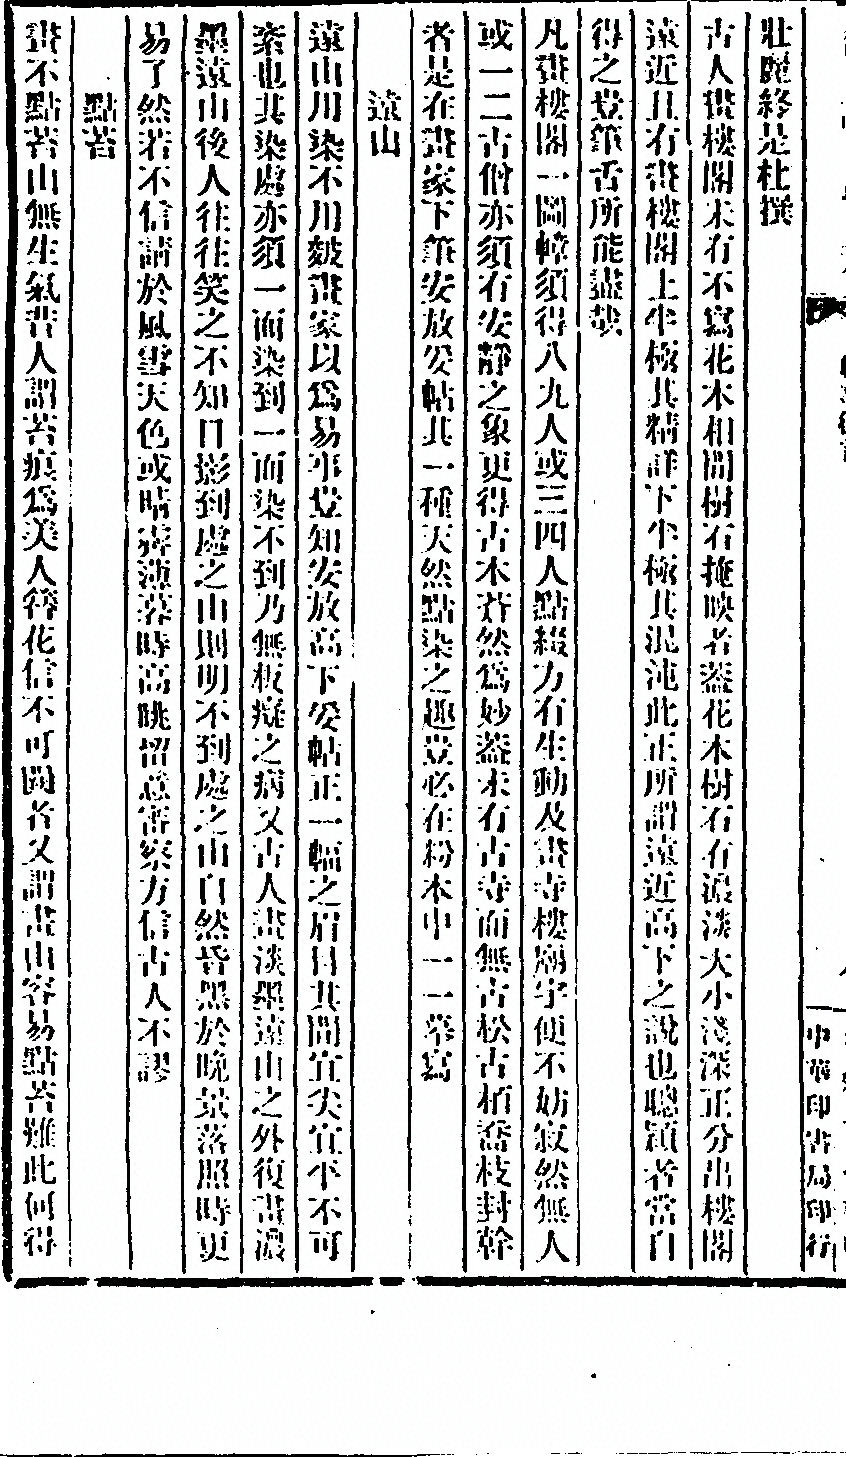 壯麗終是杜撰
古人畫樓閣未有不寫花木相間樹石掩映者蓋花木樹石有濃淡大小淺深正分出樓閣
遠近且有畫樓閣上半極其精詳下半極其混沌此正所謂遠近高下之說也聰穎者當自
得之豈筆舌所能盡哉
凡畫樓閣一圖幛須得八九人或三四人點綴方有生動及畫寺樓廟宇便不妨寂然無人
或一二古僧亦須有安靜之象更得古木蒼然為妙蓋未有古寺而無古松古栢喬枝封幹
者是在畫家下筆安放妥帖其一種天然點染之趣豈必在粉本中一一摹寫
遠山
遠山用染不用皴畫家以為易事豈知安放高下妥帖正一幅之眉目其間宜尖宜平不可
紊也其染處亦須一面染到一面染不到乃無板癡之病又古人畫淡墨遠山之外復畫濃
墨遠山後人往往笑之不知日影到處之山則明不到處之山自然昏黑於晚景落照時更
易了然若不信請於風雪天色或晴霽薄暮時高眺留意審察方信古人不謬
點苔
畫不點苔山無生氣昔人謂苔痕為美人簪花信不可闕者又謂畫山容易點苔難此何得
中華印書局印行